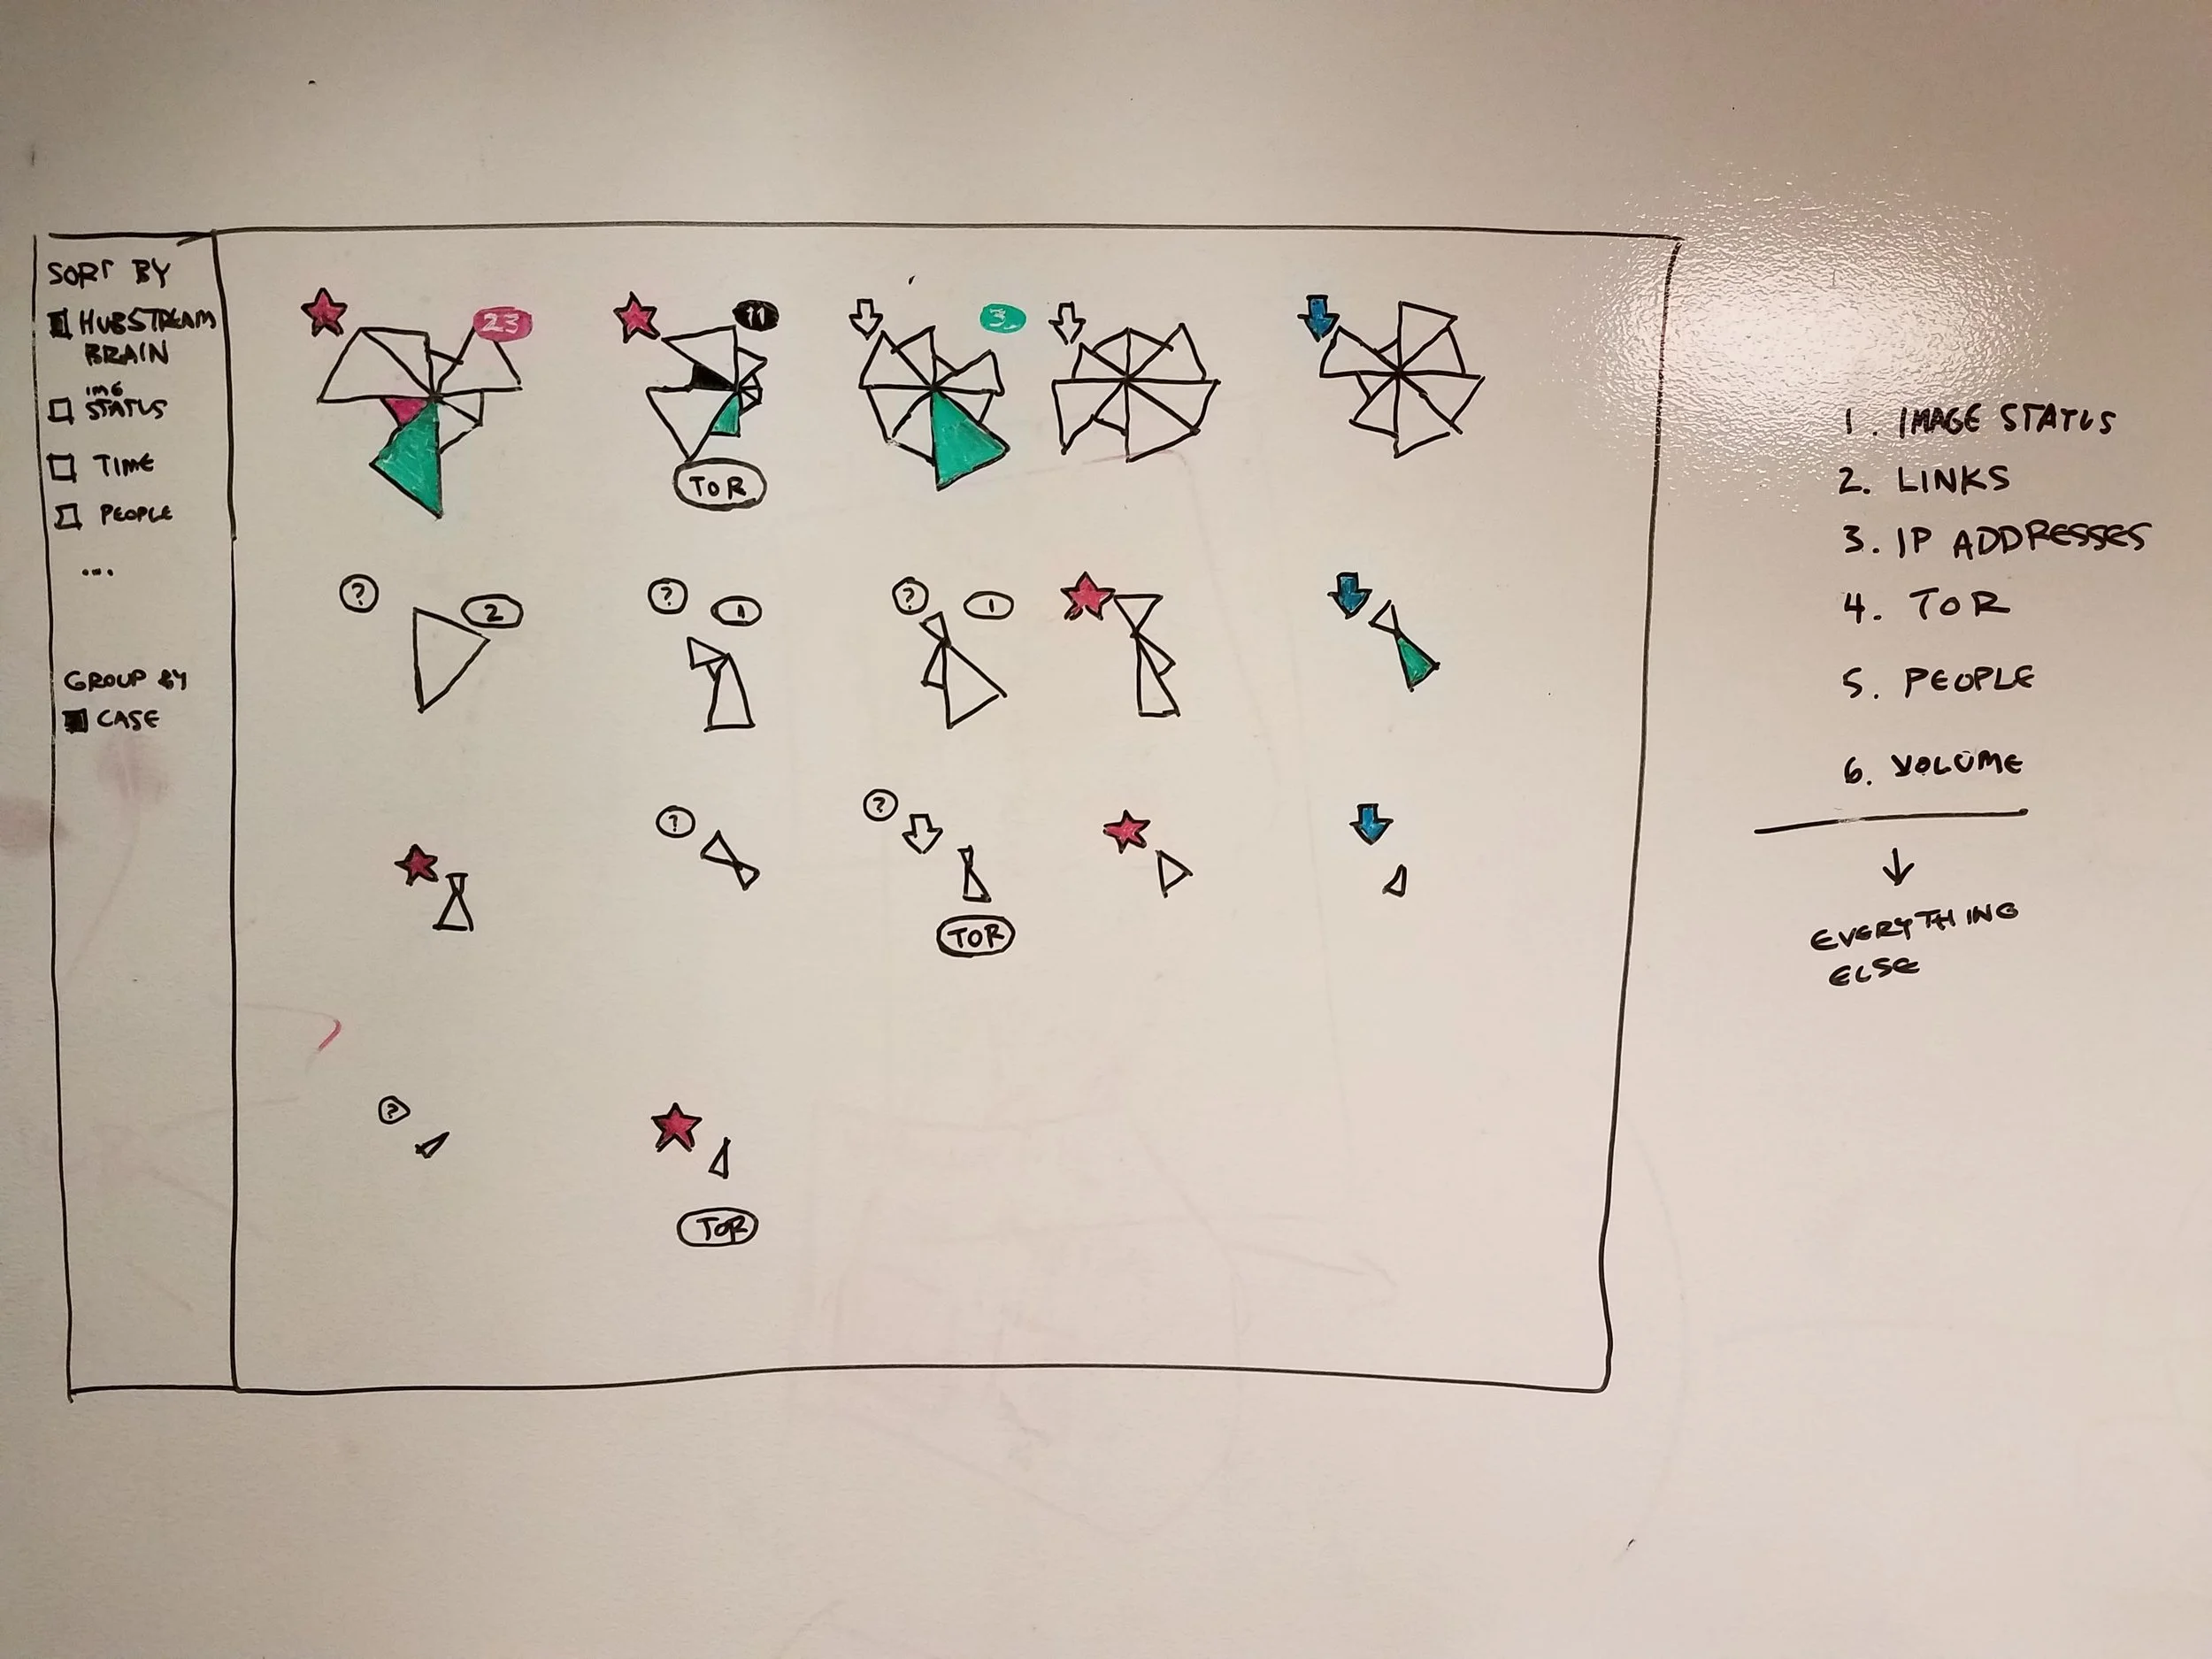 SORT BY
HUBSTREAM
BRAIN
IMG
STATUS
TIME
PEOPLE
...
GROUP BY
CASE
23
11
3
TOR
?
2
?
1
?
1
?
?
TOR
?
TOR
1. IMAGE STATUS
2. LINKS
3. IP ADDRESSES
4. TOR
5. PEOPLE
6. VOLUME
EVERYTHING
ELSE